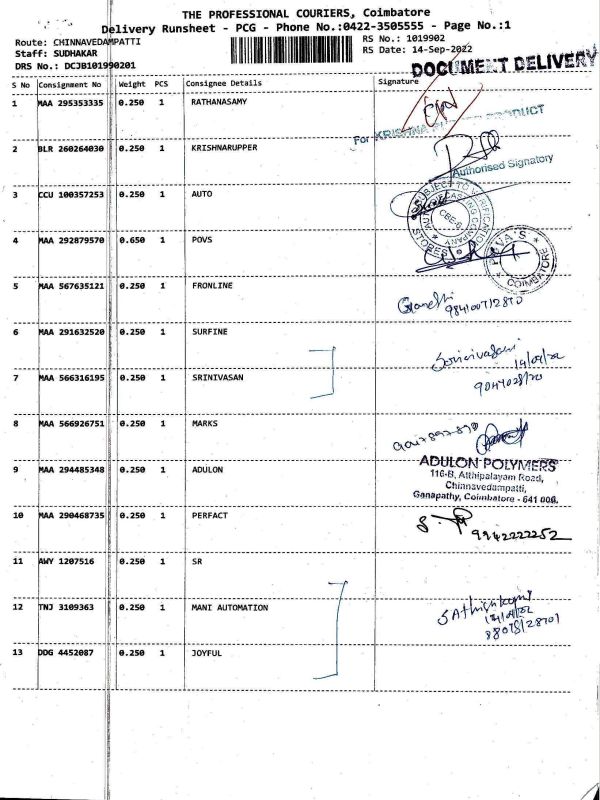 THE PROFESSIONAL COURIERS, Coimbatore
Delivery Runsheet - PCG - Phone No.:0422-3505555 - Page No.:1
Route: CHINNAVEDAMPATTI
RS No.: 1019902
Staff: SUDHAKAR
RS Date: 14-Sep-2022
DRS No.: DCJB101990201
DOCUMENT DELIVERY
S No Consignment No Weight PCS Consignee Details Signature
1 MAA 295353335 0.250 1 RATHANASAMY
For KRISHNA PRODUCT
2 BLR 260264030 0.250 1 KRISHNARUPPER
Authorised Signatory
3 CCU 100357253 0.250 1 AUTO
SUBJECT TO VERIFICATION
CASTING COMPANY
CBE-6
STORES
4 MAA 292879570 0.650 1 POVS
COIMBATORE
5 MAA 567635121 0.250 1 FRONLINE
6 MAA 291632520 0.250 1 SURFINE
Srinivasan
14/09/22
7 MAA 566316195 0.250 1 SRINIVASAN
8 MAA 566926751 0.250 1 MARKS
9 MAA 294485348 0.250 1 ADULON
ADULON POLYMERS
116-B, Atthipalayam Road,
Chinnavedampatti,
Ganapathy, Coimbatore - 641 006.
10 MAA 290468735 0.250 1 PERFACT
9942222252
11 AWY 1207516 0.250 1 SR
12 TNJ 3109363 0.250 1 MANI AUTOMATION
13 DDG 4452087 0.250 1 JOYFUL